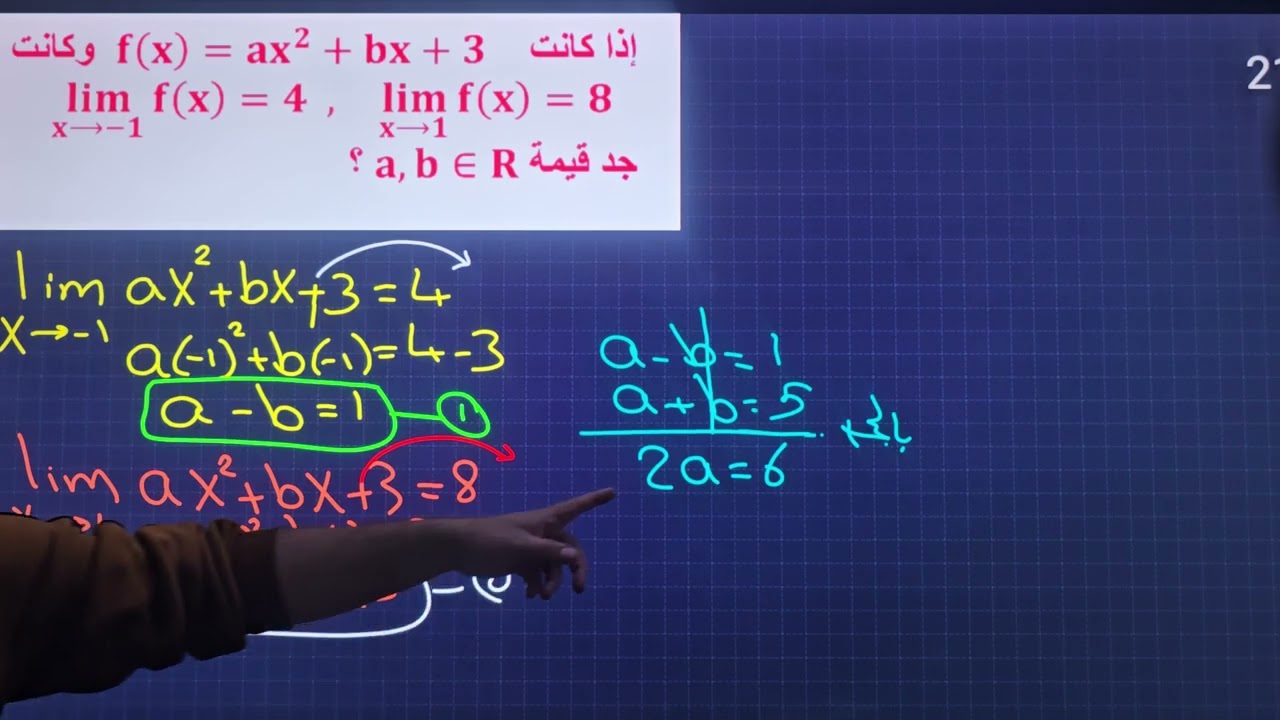 إذا كانت f(x) = ax² + bx + 3 وكانت
lim x→-1 f(x) = 4 , lim x→1 f(x) = 8
جد قيمة a, b ∈ R ؟
21
lim x→-1 ax² + bx + 3 = 4
a(-1)² + b(-1) = 4 - 3
a - b = 1 ①
lim ax² + bx + 3 = 8
a - b = 1
a + b = 5
بالجمع
2a = 6